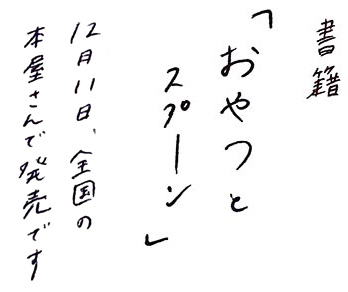 書籍
「おやつと
スプーン」
12月11日、全国の
本屋さんで発売です